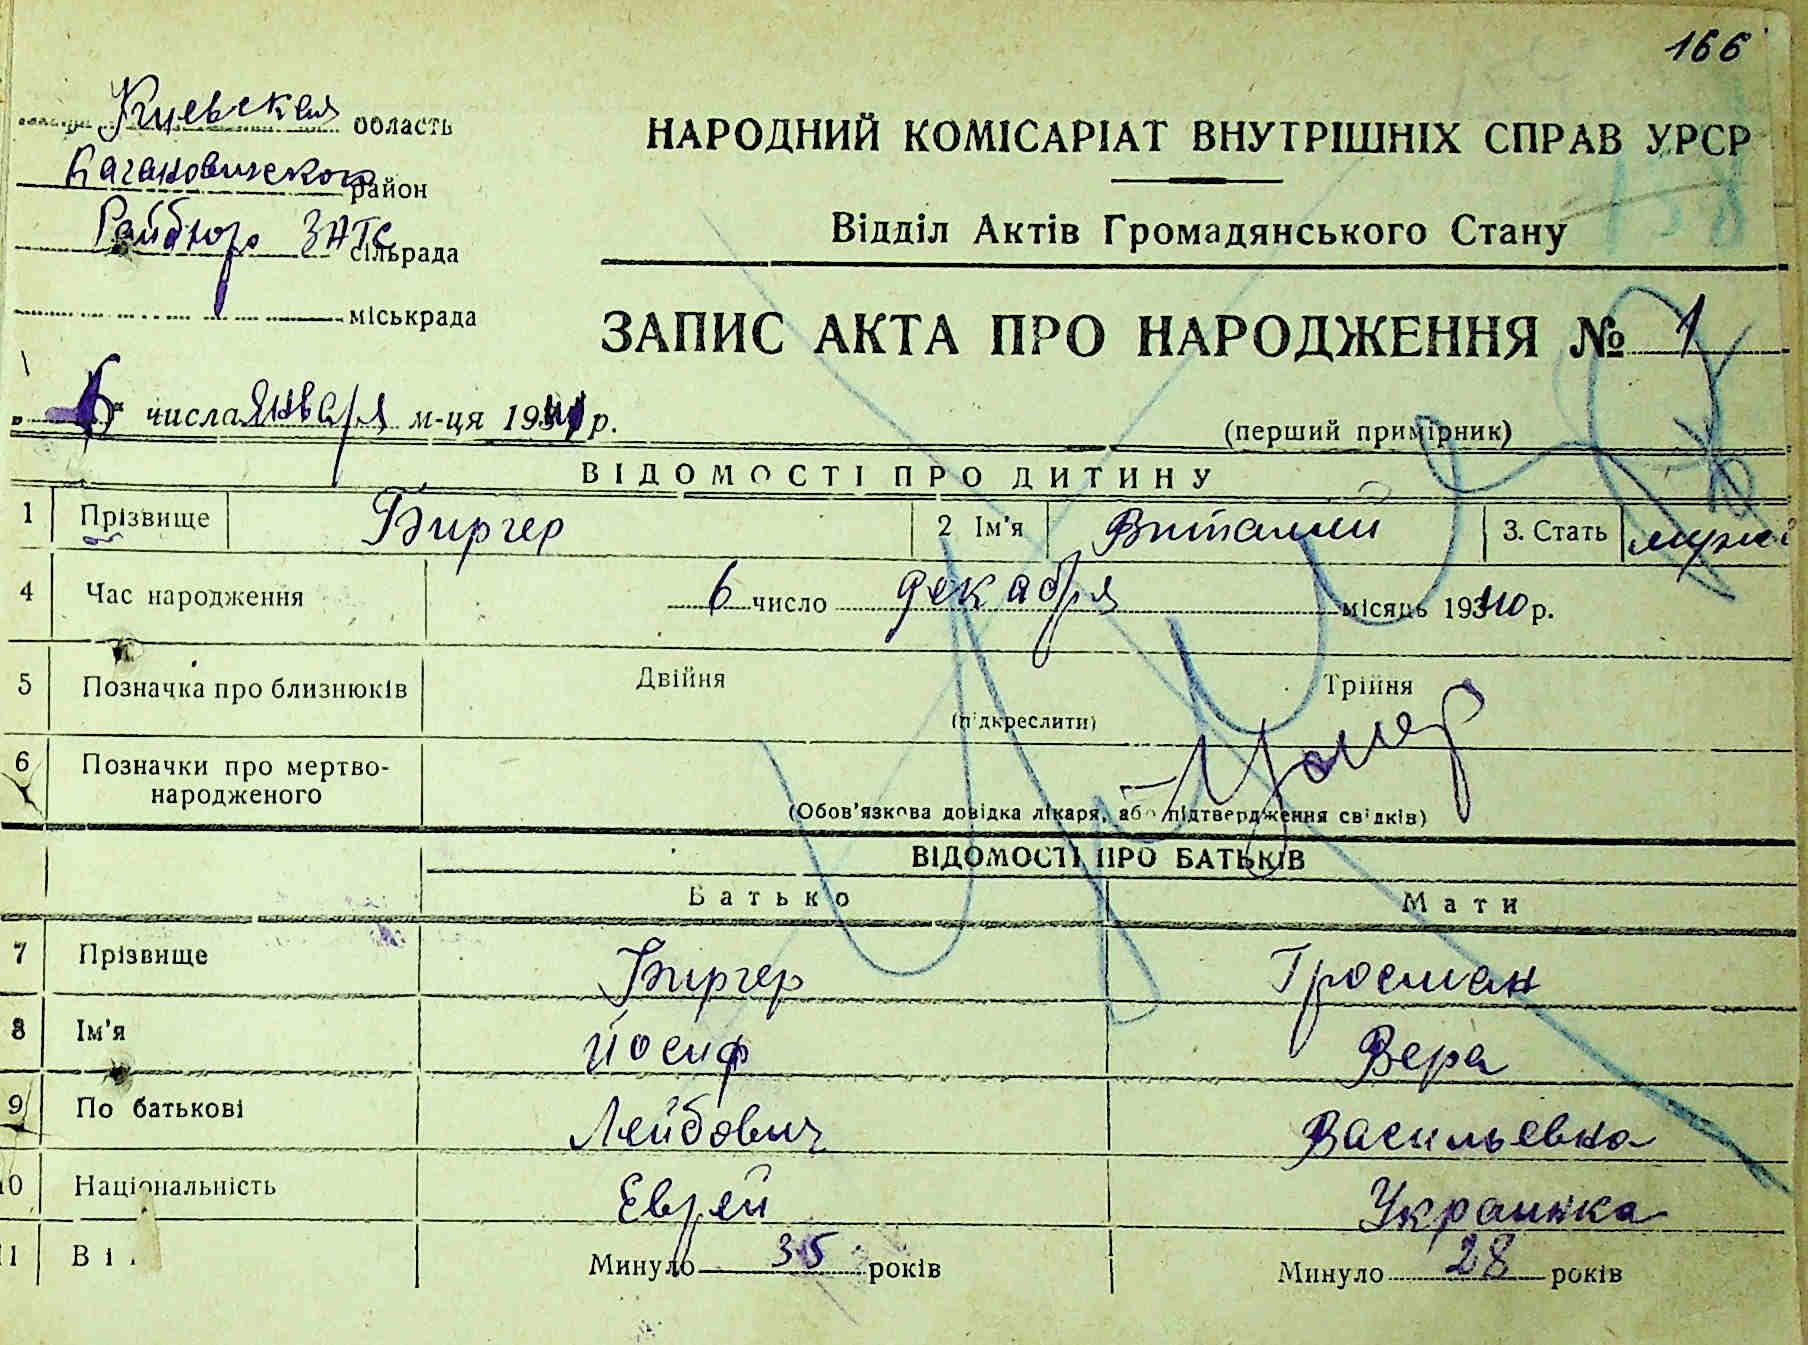 166
Киевская область
Кагановического район
Райбюро ЗАГС сільрада
міськрада
НАРОДНИЙ КОМІСАРІАТ ВНУТРІШНІХ СПРАВ УРСР
138
Відділ Актів Громадянського Стану
ЗАПИС АКТА ПРО НАРОДЖЕННЯ № 1
„6“ числа января м-ця 1941 р.
(перший примірник)
ВІДОМОСТІ ПРО ДИТИНУ
1 Прізвище Биргер 2 Ім'я Виталий 3. Стать муж.
4 Час народження 6 число декабря місяць 1940 р.
5 Позначка про близнюків Двійня Трійня
(підкреслити)
6 Позначки про мертво-
народженого
(Обов'язкова довідка лікаря, або підтвердження свідків)
Умер
ВІДОМОСТІ ПРО БАТЬКІВ
Батько Мати
7 Прізвище Биргер Гросман
8 Ім'я Йосиф Вера
9 По батькові Лейбович Васильевна
10 Національність Еврей Украинка
11 Ві Минуло 35 років Минуло 28 років